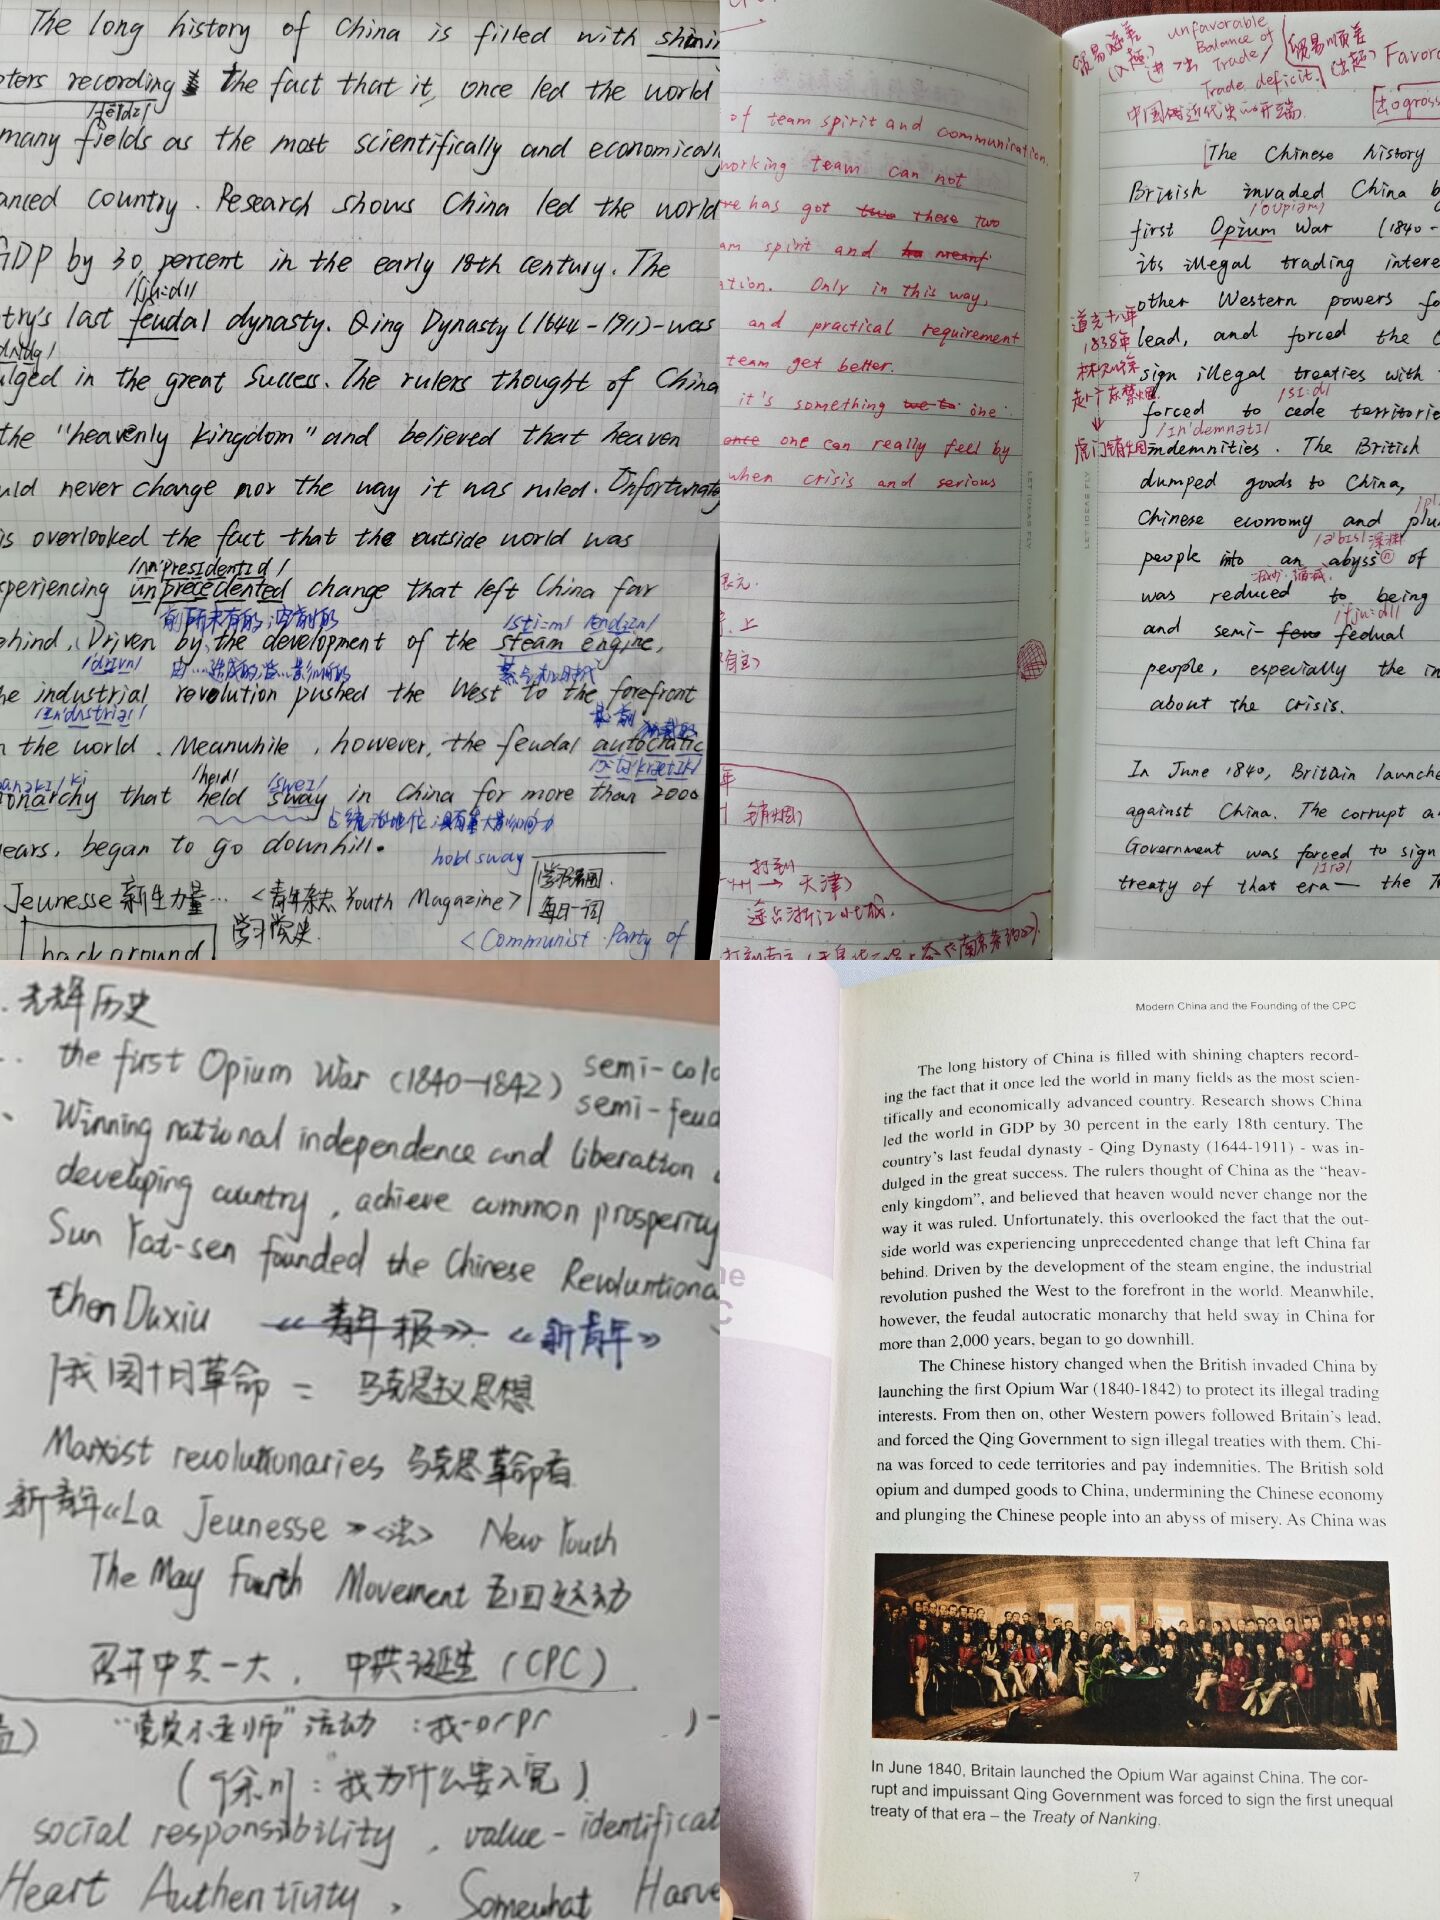 The long history of China is filled with
recording the fact that it, once led the world
/fi:ldz/
many fields as the most scientifically and economically
country. Research shows China led the world
GDP by 30 percent in the early 18th century. The
/'fju:dl/
last feudal dynasty. Qing Dynasty (1644-1911)-was
in the great success. The rulers thought of China
the "heavenly kingdom" and believed that heaven
never change nor the way it was ruled.
is overlooked the fact that the outside world was
unprecedented change that left China far
前所未有的;空前的
Driven by the development of the steam engine,
industrial revolution pushed the West to the forefront
the world. Meanwhile, however, the feudal autocratic
/held/ /swei/
that held sway in China for more than 2000
began to go downhill.
hold sway
Jeunesse 新生力量... <青年杂志 Youth Magazine>
每日一词
学习党史
<Communist Party of
background
of team spirit and communication.
working team can not
has got two these two
spirit and
Only in this way,
and practical requirement
team get better.
it's something one
once one can really feel by
when crisis and serious
LET IDEAS FLY
销烟)
打到
天津)
unfavorable
Balance of
Trade
Trade deficit.
贸易顺差
中国近代史的开端
gross
The Chinese history
British invaded China
first Opium War (1840-
its illegal trading
other Western powers
道光十八年
1838年
lead, and forced the
林则徐
sign illegal treaties with
/si:d/
forced to cede
/in'demnəti/
虎门销烟
indemnities. The British
dumped goods to China,
Chinese economy and
people into an abyss of
was reduced to being
/'fju:dl/
and semi- fedual
people, especially the
about the crisis.
LET IDEAS FLY
In June 1840, Britain
against China. The corrupt
Government was forced to sign
treaty of that era— the
光辉历史
the first Opium War (1840-1842) semi-
semi-
Winning national independence and liberation
developing country, achieve common prosperity
Sun Yat-sen founded the Chinese
Duxiu 《青年报》 《新青年》
十月革命 = 马克思主义思想
Marxist revolutionaries 马克思革命者
新青年《La Jeunesse》<法> New Youth
The May Fourth Movement 五四运动
召开中共一大, 中共诞生 (CPC)
活动
(徐川:我为什么要入党)
social responsibility, value-
Heart Authentivity, Somewhat
Modern China and the Founding of the CPC
The long history of China is filled with shining chapters record-
ing the fact that it once led the world in many fields as the most scien-
tifically and economically advanced country. Research shows China
led the world in GDP by 30 percent in the early 18th century. The
country's last feudal dynasty - Qing Dynasty (1644-1911) - was in-
dulged in the great success. The rulers thought of China as the "heav-
enly kingdom", and believed that heaven would never change nor the
way it was ruled. Unfortunately, this overlooked the fact that the out-
side world was experiencing unprecedented change that left China far
behind. Driven by the development of the steam engine, the industrial
revolution pushed the West to the forefront in the world. Meanwhile,
however, the feudal autocratic monarchy that held sway in China for
more than 2,000 years, began to go downhill.
The Chinese history changed when the British invaded China by
launching the first Opium War (1840-1842) to protect its illegal trading
interests. From then on, other Western powers followed Britain's lead,
and forced the Qing Government to sign illegal treaties with them. Chi-
na was forced to cede territories and pay indemnities. The British sold
opium and dumped goods to China, undermining the Chinese economy
and plunging the Chinese people into an abyss of misery. As China was
In June 1840, Britain launched the Opium War against China. The cor-
rupt and impuissant Qing Government was forced to sign the first unequal
treaty of that era – the Treaty of Nanking.
7